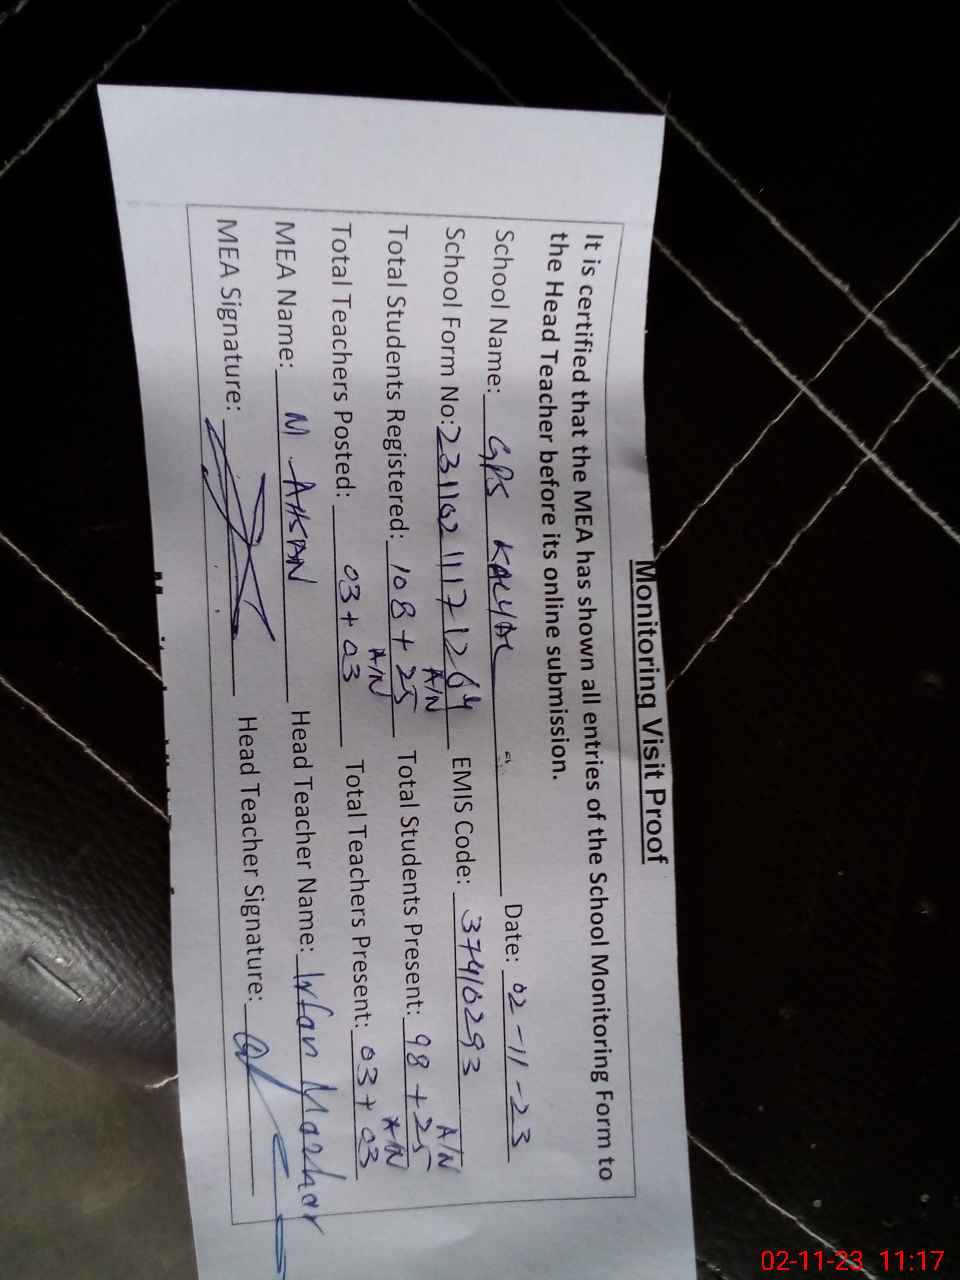 Monitoring Visit Proof
It is certified that the MEA has shown all entries of the School Monitoring Form to
the Head Teacher before its online submission.
School Name: GPS KALYAL Date: 02-11-23
School Form No: EMIS Code: 37410293
A/N A/N
Total Students Registered: 108 + 25 Total Students Present: 98 + 25
A/N A/N
Total Teachers Posted: 03 + 03 Total Teachers Present: 03 + 03
MEA Name: M. AHSAN Head Teacher Name: Irfan Mazhar
MEA Signature: Head Teacher Signature:
02-11-23 11:17